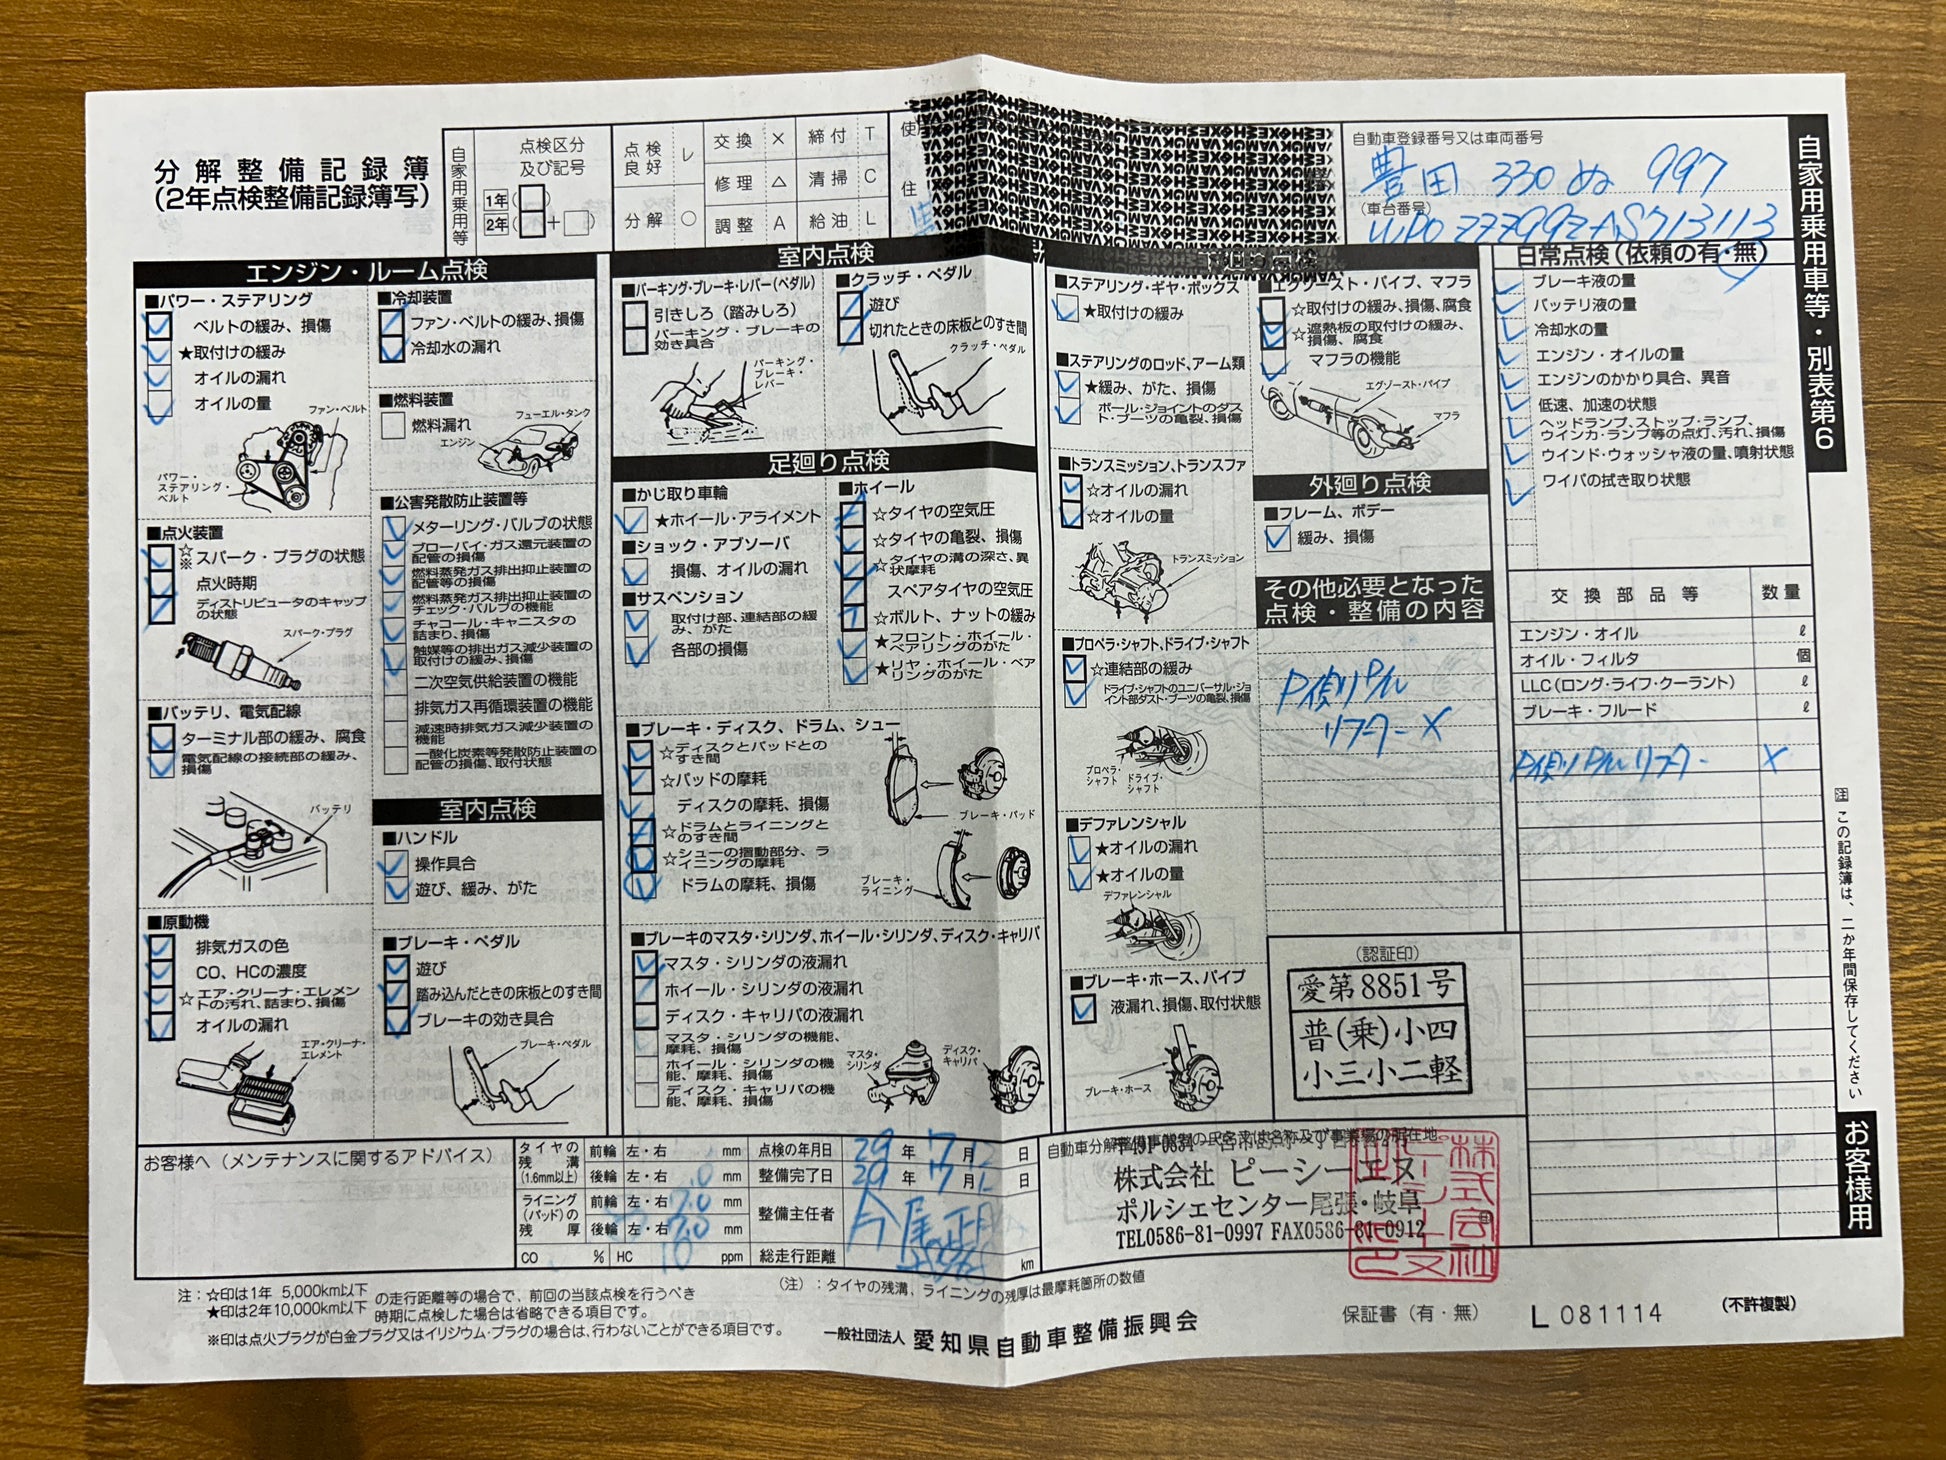 分解整備記録簿
(2年点検整備記録簿写)
自家用乗用等
点検区分
及び記号
1年( )
2年( + )
点検良好 レ
分解 ○
交換 ×
修理 △
調整 A
締付 T
清掃 C
給油 L
使
住
自動車登録番号又は車両番号
豊田 330 ぬ 997
(車台番号)
WP0ZZZ99Z7S713113
自家用乗用車等・別表第6
エンジン・ルーム点検
■パワー・ステアリング
ベルトの緩み、損傷
★取付けの緩み
オイルの漏れ
オイルの量
ファン・ベルト
パワー・ステアリング・ベルト
■点火装置
☆※スパーク・プラグの状態
点火時期
ディストリビュータのキャップの状態
スパーク・プラグ
■バッテリ、電気配線
ターミナル部の緩み、腐食
電気配線の接続部の緩み、損傷
バッテリ
■原動機
排気ガスの色
CO、HCの濃度
☆エア・クリーナ・エレメントの汚れ、詰まり、損傷
オイルの漏れ
エア・クリーナ・エレメント
■冷却装置
ファン・ベルトの緩み、損傷
冷却水の漏れ
■燃料装置
燃料漏れ
フューエル・タンク
エンジン
■公害発散防止装置等
メターリング・バルブの状態
ブローバイ・ガス還元装置の配管の損傷
燃料蒸発ガス排出抑止装置の配管等の損傷
燃料蒸発ガス排出抑止装置のチェック・バルブの機能
チャコール・キャニスタの詰まり、損傷
触媒等の排出ガス減少装置の取付けの緩み、損傷
二次空気供給装置の機能
排気ガス再循環装置の機能
減速時排気ガス減少装置の機能
一酸化炭素等発散防止装置の配管の損傷、取付状態
室内点検
■ハンドル
操作具合
遊び、緩み、がた
■ブレーキ・ペダル
遊び
踏み込んだときの床板とのすき間
ブレーキの効き具合
ブレーキ・ペダル
室内点検
■パーキング・ブレーキ・レバー(ペダル)
引きしろ(踏みしろ)
パーキング・ブレーキの効き具合
パーキング・ブレーキ・レバー
■クラッチ・ペダル
遊び
切れたときの床板とのすき間
クラッチ・ペダル
足廻り点検
■かじ取り車輪
★ホイール・アライメント
■ショック・アブソーバ
損傷、オイルの漏れ
■サスペンション
取付け部、連結部の緩み、がた
各部の損傷
■ホイール
☆タイヤの空気圧
☆タイヤの亀裂、損傷
☆タイヤの溝の深さ、異状摩耗
スペアタイヤの空気圧
☆ボルト、ナットの緩み
★フロント・ホイール・ベアリングのがた
★リヤ・ホイール・ベアリングのがた
■ブレーキ・ディスク、ドラム、シュー
☆ディスクとパッドとのすき間
☆パッドの摩耗
ディスクの摩耗、損傷
☆ドラムとライニングとのすき間
☆シューの摺動部分、ライニングの摩耗
ドラムの摩耗、損傷
ブレーキ・パッド
ブレーキ・ライニング
■ブレーキのマスタ・シリンダ、ホイール・シリンダ、ディスク・キャリパ
マスタ・シリンダの液漏れ
ホイール・シリンダの液漏れ
ディスク・キャリパの液漏れ
マスタ・シリンダの機能、摩耗、損傷
ホイール・シリンダの機能、摩耗、損傷
ディスク・キャリパの機能、摩耗、損傷
マスタ・シリンダ
ディスク・キャリパ
■ステアリング・ギヤ・ボックス
★取付けの緩み
■ステアリングのロッド、アーム類
★緩み、がた、損傷
ボール・ジョイントのダスト・ブーツの亀裂、損傷
■トランスミッション、トランスファ
☆オイルの漏れ
☆オイルの量
トランスミッション
■プロペラ・シャフト、ドライブ・シャフト
☆連結部の緩み
ドライブ・シャフトのユニバーサル・ジョイント部ダスト・ブーツの亀裂、損傷
プロペラ・シャフト
ドライブ・シャフト
■デファレンシャル
★オイルの漏れ
★オイルの量
デファレンシャル
■ブレーキ・ホース、パイプ
液漏れ、損傷、取付状態
ブレーキ・ホース
■エグゾースト・パイプ、マフラ
☆取付けの緩み、損傷、腐食
☆遮熱板の取付けの緩み、損傷、腐食
マフラの機能
エグゾースト・パイプ
マフラ
外廻り点検
■フレーム、ボデー
緩み、損傷
その他必要となった点検・整備の内容
リフター X
(認証印)
愛第8851号
普(乗)小四
小三小二軽
日常点検(依頼の有・無)
ブレーキ液の量
バッテリ液の量
冷却水の量
エンジン・オイルの量
エンジンのかかり具合、異音
低速、加速の状態
ヘッドランプ、ストップ・ランプ、ウインカ・ランプ等の点灯、汚れ、損傷
ウインド・ウォッシャ液の量、噴射状態
ワイパの拭き取り状態
交換部品等 数量
エンジン・オイル ℓ
オイル・フィルタ 個
LLC(ロング・ライフ・クーラント) ℓ
ブレーキ・フルード ℓ
リフター X
注 この記録簿は、二か年間保存してください
お客様用
お客様へ(メンテナンスに関するアドバイス)
タイヤの残溝(1.6mm以上)
前輪 左・右 mm
後輪 左・右 mm
ライニング(パッド)の残厚
前輪 左・右 7.0 mm
後輪 左・右 7.0 mm
CO % HC 10 ppm
点検の年月日 29年 7月 日
整備完了日 29年 7月 日
整備主任者
総走行距離 km
自動車分解整備事業者の氏名又は名称及び事業場の所在地
株式会社 ピーシーエス
ポルシェセンター尾張・岐阜
TEL0586-81-0997 FAX0586-81-0912
注:☆印は1年 5,000km以下
★印は2年10,000km以下
の走行距離等の場合で、前回の当該点検を行うべき時期に点検した場合は省略できる項目です。
※印は点火プラグが白金プラグ又はイリジウム・プラグの場合は、行わないことができる項目です。
(注):タイヤの残溝、ライニングの残厚は最摩耗箇所の数値
一般社団法人 愛知県自動車整備振興会
保証書(有・無)
L 081114
(不許複製)